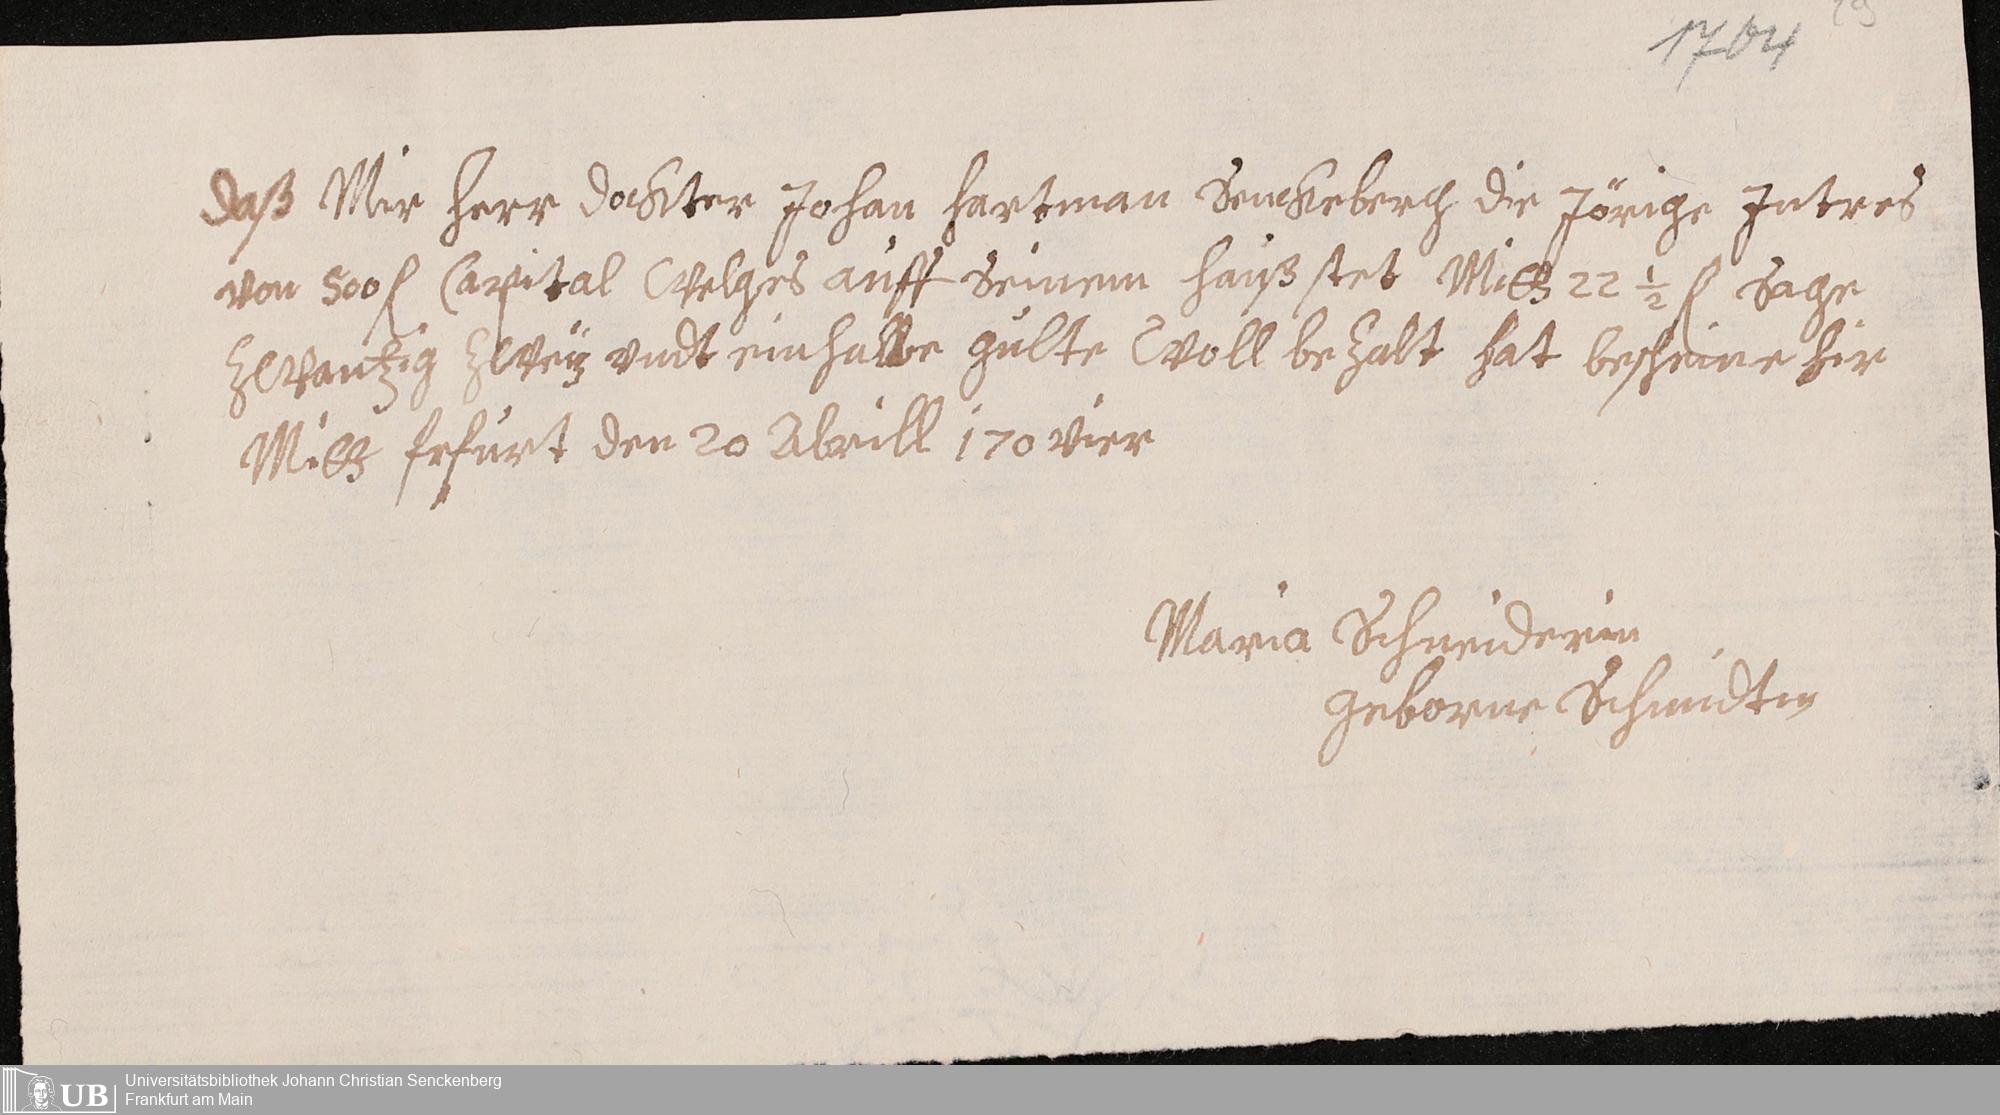 1704
29
Daß Mir herr dockter Johan hartman Senckeberg die Jörige Intres
von 500 f Capital Welges auff Seinem hauß stet Mitt 22 ½ f Sage
Zwantzig Zwey undt ein halbe gulte Woll beZalt hat bescheine hir
Mitt frfurt den 20 Abrill 170 vier
Maria Schneiderin
geborne Schmidtin
UB
Universitätsbibliothek Johann Christian Senckenberg
Frankfurt am Main